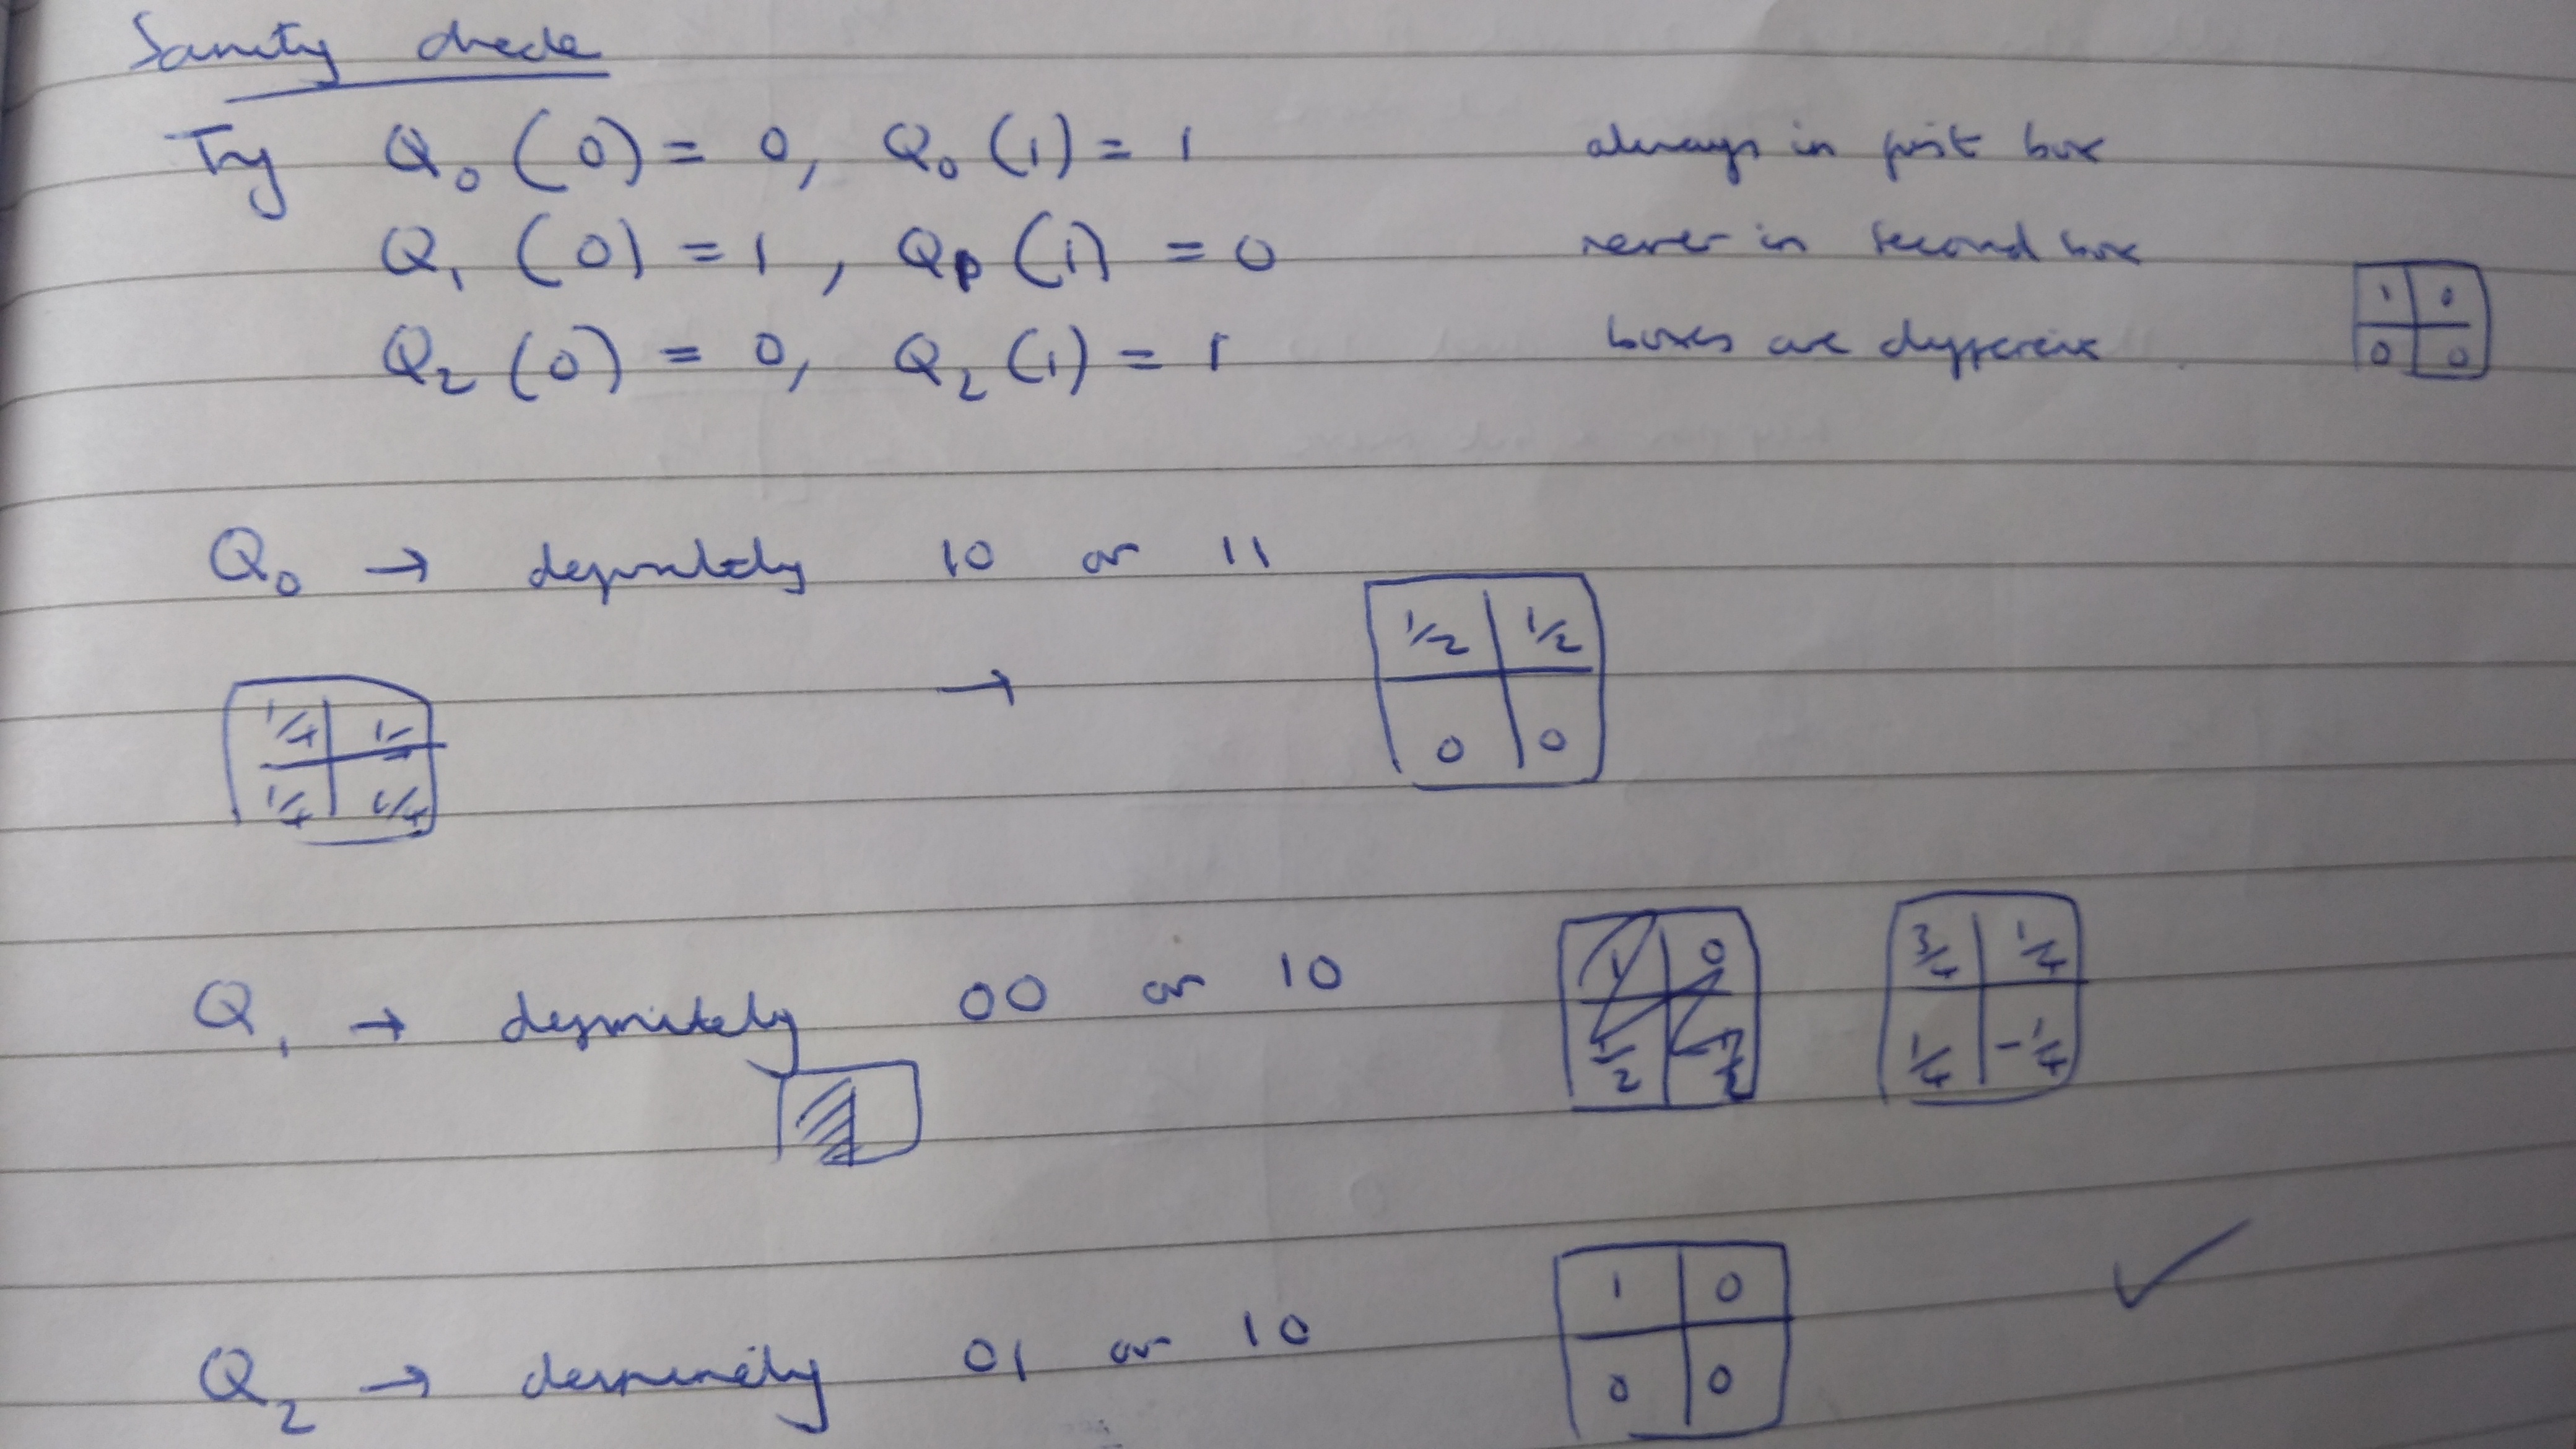 Sanity check
Try Q₀(0) = 0, Q₀(1) = 1 always in first box
Q₁(0) = 1, Q₁(1) = 0 never in second box
Q₂(0) = 0, Q₂(1) = 1 boxes are different
1 0
0 0
Q₀ → definitely 10 or 11
1/2 1/2
→
0 0
1/4
1/4 1/4
Q₁ → definitely 00 or 10
1 0
3/4 1/4
1/4 -1/4
Q₂ → definitely 01 or 10
1 0 ✓
0 0